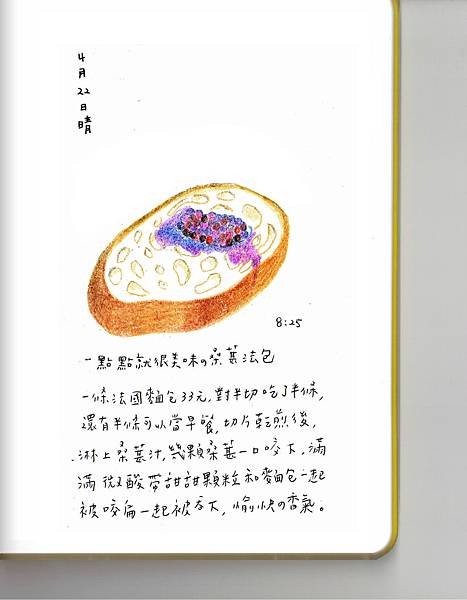 4月22日晴
8:25
一點點就很美味の桑葚法包
一條法國麵包33元,對半切吃了半條,
還有半條可以當早餐,切片乾煎後,
淋上桑葚汁,幾顆桑葚一口咬下,滿
滿微酸帶甜甜顆粒和麵包一起
被咬扁一起被吞下,愉快の香氣。